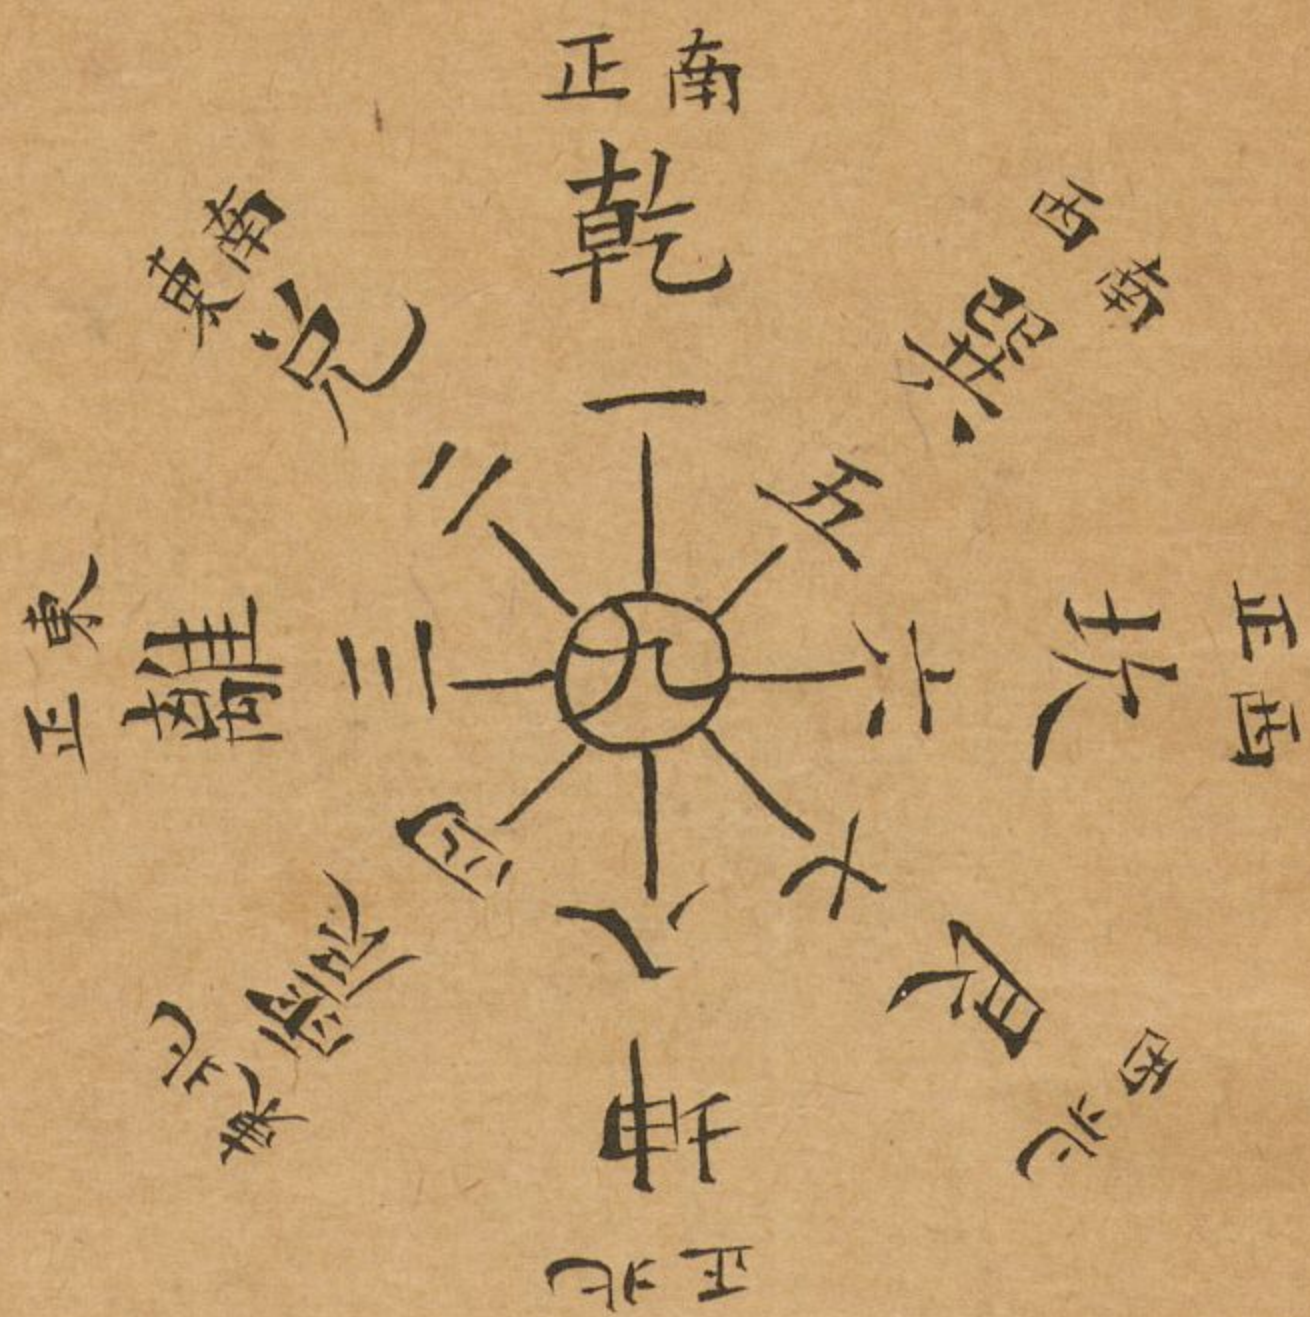 正南
乾
一
西南
巽
五
正西
坎
六
西北
艮
七
正北
坤
八
東北
震
四
正東
離
三
東南
兌
二
九